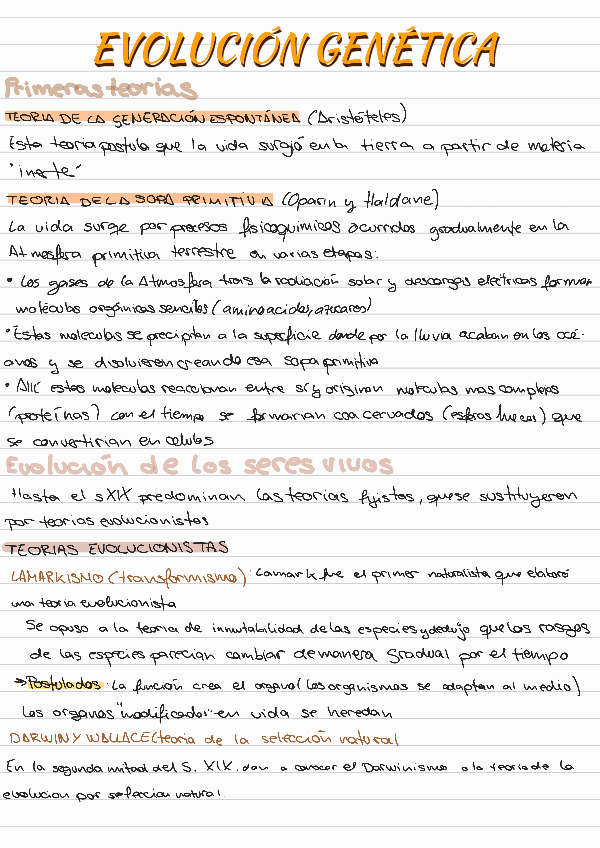 EVOLUCIÓN GENÉTICA
Primeras teorías
TEORIA DE LA GENERACIÓN ESPONTÁNEA (Aristóteles)
Esta teoria postula que la vida surgió en la tierra a partir de materia
"inerte"
TEORIA DE LA SOPA PRIMITIVA (Oparin y Haldane)
La vida surge por procesos fisicoquimicos ocurridos gradualmente en la
Atmosfera primitiva terrestre en varias etapas:
• Los gases de la Atmosfera tras la radiación solar y descargas electricas forman
moléculas orgánicas sencillas (aminoacidos, azucares)
• Estas moleculas se precipitan a la superficie donde por la lluvia acaban en los océ-
anos y se disolvieron creando esa sopa primitiva
• Allí estas moleculas reaccionan entre sí y originan moleculas mas complejas
(proteínas) con el tiempo se formarian coacervados (esferas huecas) que
se convertirian en celulas
Evolución de los seres vivos
Hasta el sXIX predominan las teorías fijistas, que se sustituyeron
por teorias evolucionistas
TEORIAS EVOLUCIONISTAS
LAMARKISMO (transformismo) Lamark fue el primer naturalista que elaboró
una teoria evolucionista
Se opuso a la teoria de inmutabilidad de las especies y dedujo que los rasgos
de las especies parecian cambiar de manera gradual por el tiempo
→ Postulados La función crea el organo (los organismos se adaptan al medio)
Los organos "modificados" en vida se heredan
DARWIN Y WALLACE (teoria de la selección natural
En la segunda mitad del S. XIX. dan a conocer el Darwinismo o la teoria de la
evolucion por seleccion natural.